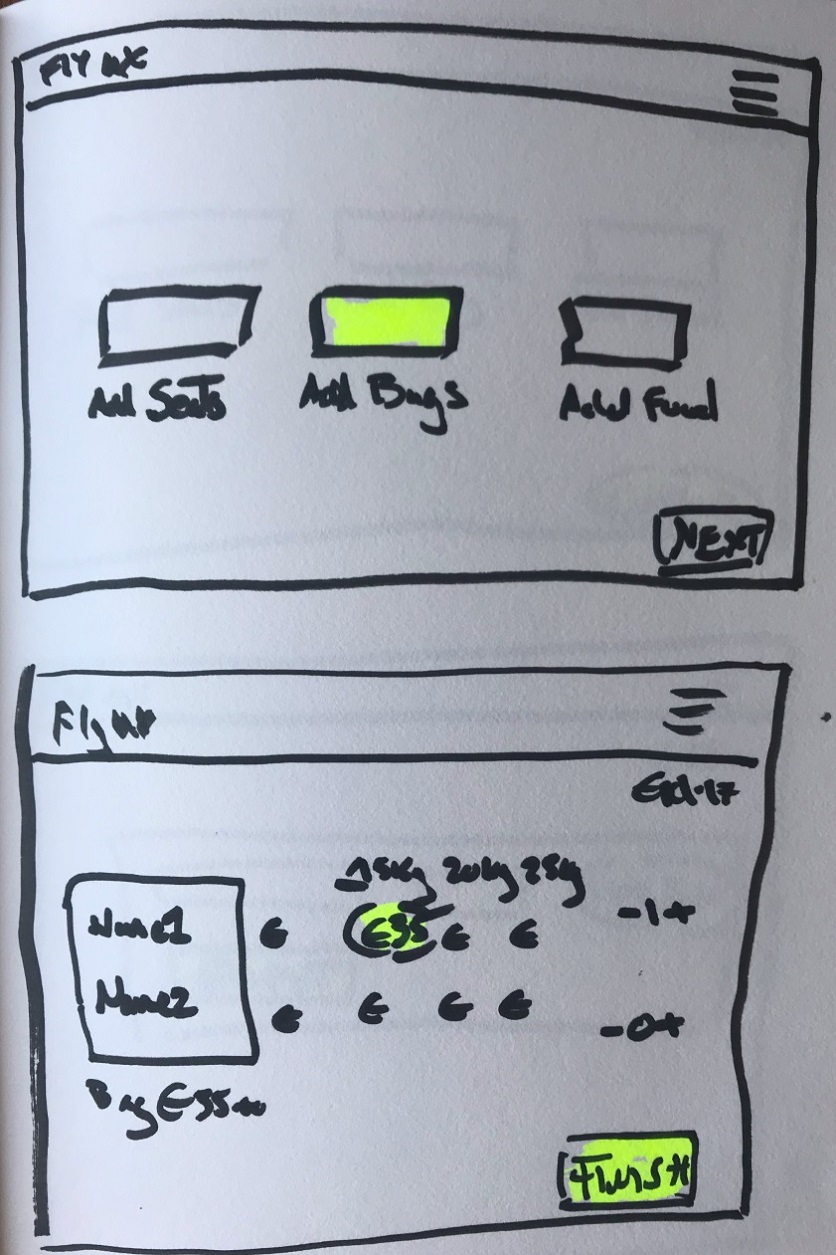 FLY UX
Add Seats Add Bags Add Food
NEXT
Fly UX
15kg 20kg 25kg
Name1 € €35 € € -1+
Name2 € € € € -0+
Bag €35
FINISH